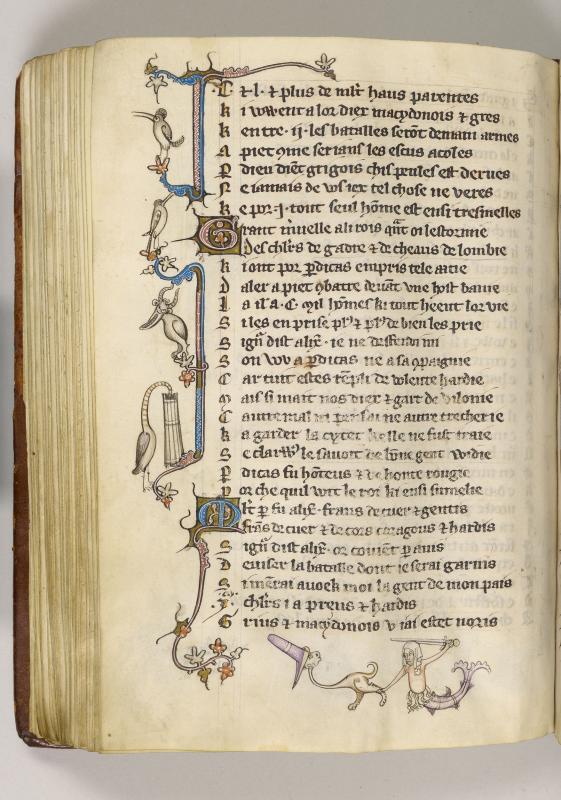 C et .l. et plus de mlt haus parentes
K i vivent a lor diex macydonois et gres
K entre .ij. les batalles serōt demain armes
A piet ꝯme serians les escus acoles
P dieu diēt grigois chis peules est derues
N e iamais de vos iex tel chose ne veres
K e por .j. tout seul hōme est ensi tresmelles
Grant mūelle ali rois qn̄t oi lestormie
Des chl'rs de gadre et de cheaus de lombie
K i ont por ꝑdicas empris tele aatie
D aler a piet ꝯbatre deuāt vne host banie
I a il a .C. mil hōmes ki tout heent lor vie
S il es enprise
S ignȝ dist alix̄ ie ne desfent mi
S on voy a ꝑdicas ne a sa ꝯpaignie
C ar tuit estes rēpli de volente hardie
M ais si mait nos diex et gart de vilonie
C autre mal ni ne autre trecherie
K a garder la cytet kelle ne fust traie
S e clar le sauoit de gent
P dicas fu hōteus et de honte rougie
P or che quil voit le roi ki ensi sumelie
Mlt ꝑ fu alix̄ frans de cuer et gentis
frās de cuer et de cors coragous et hardis
S ignȝ dist alix̄ or couiēt ꝑ auis
D euiser la batalle dont ie serai garnis
S i mērai auoek moi la gent de mon pais
chl'rs i a preus et hardis
G rius et macydonois v iai estet noris